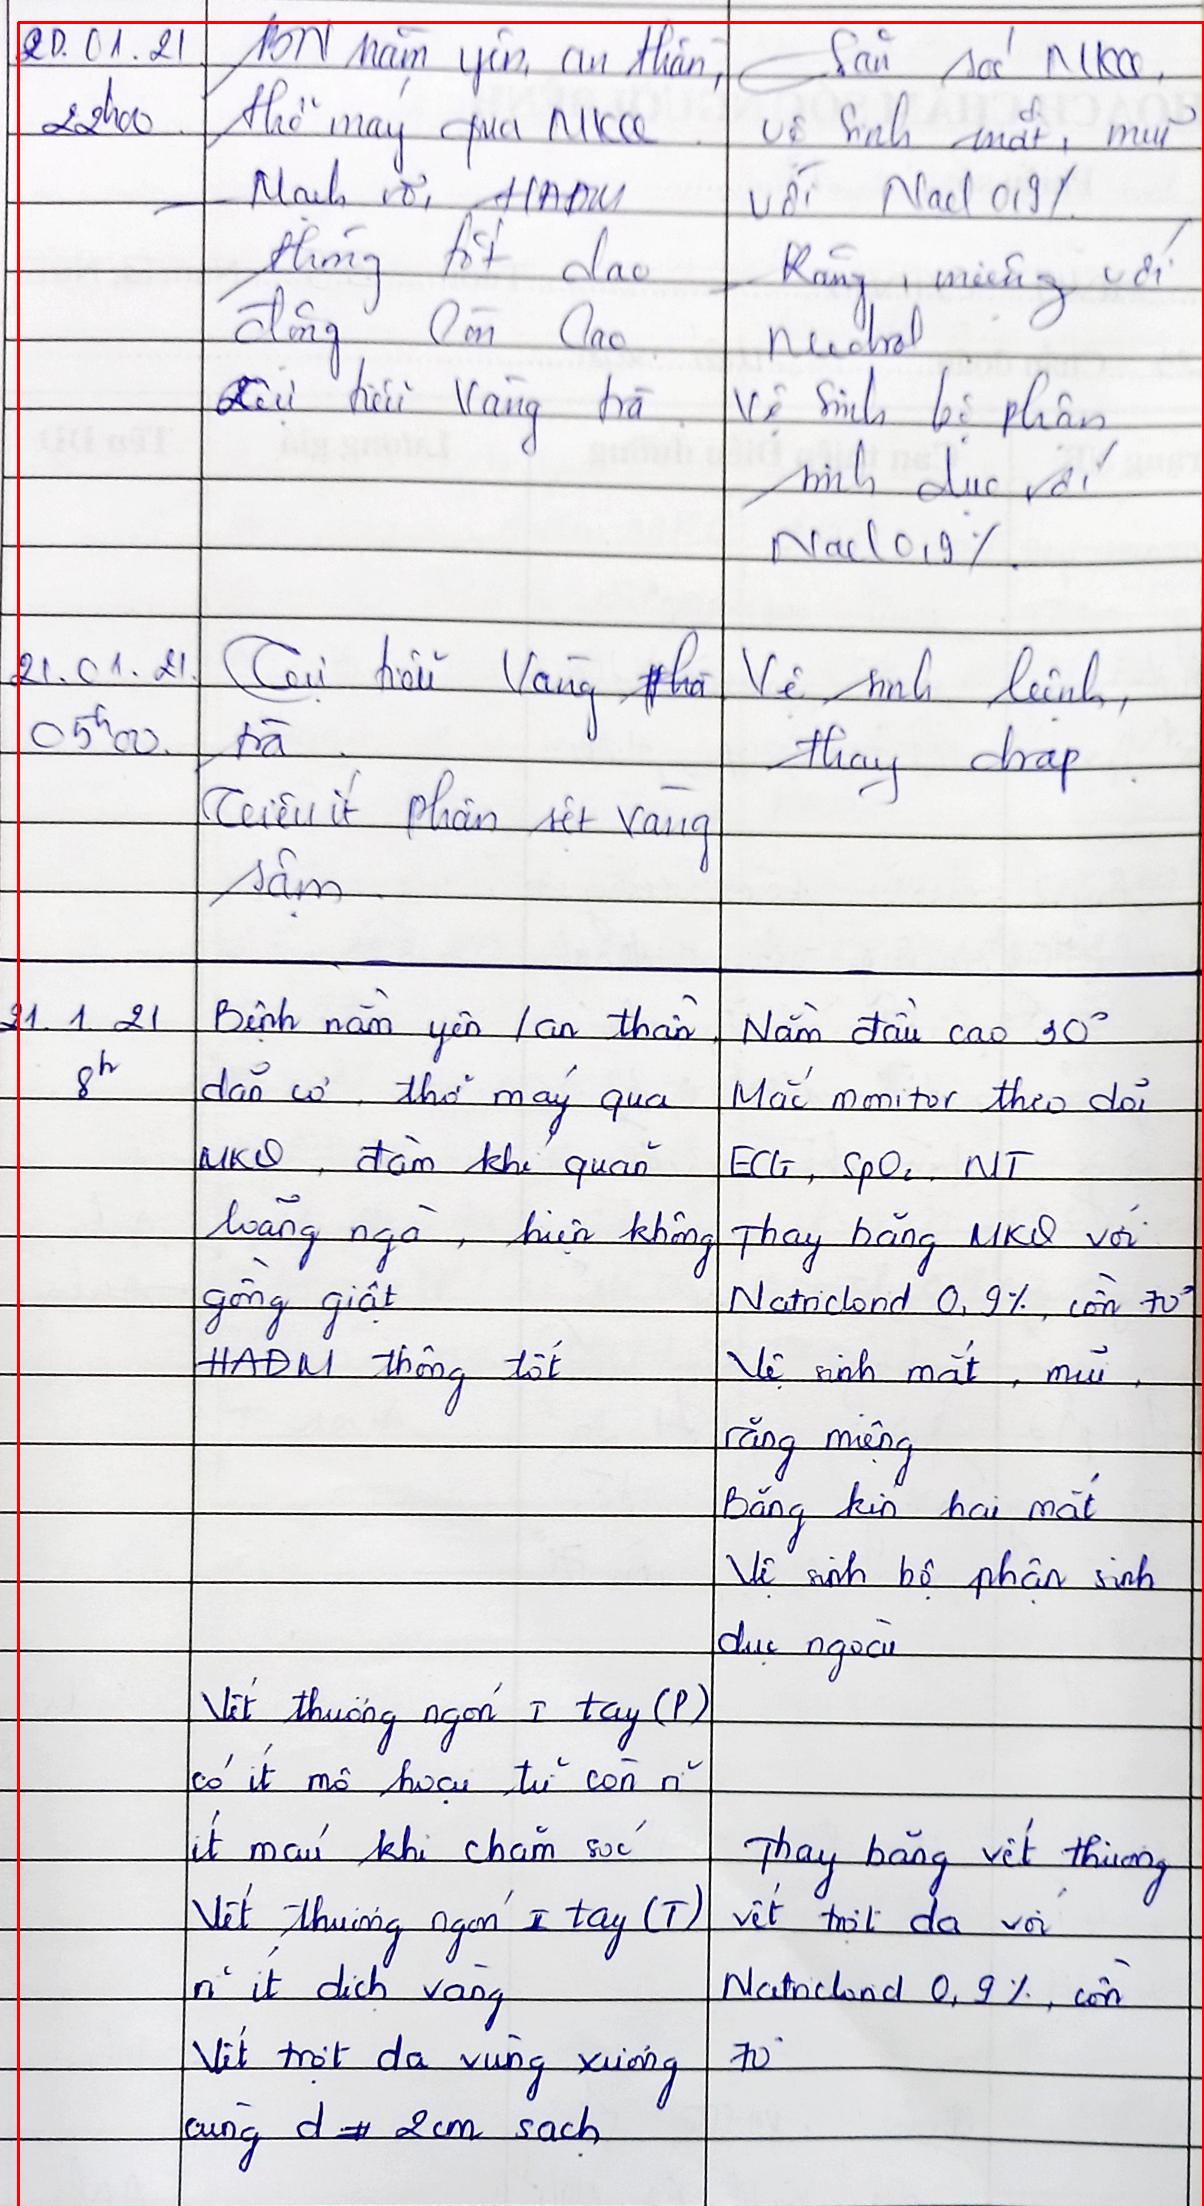 20.01.21
22h00
BN nằm yên, an thần,
thở máy qua MKQ
Mạch rõ, HAĐM
thông tốt dao
động còn cao
Tiểu vàng trà
Săn sóc MKQ,
vệ sinh mắt, mũi
với Nacl 0,9%
Răng, miệng với
Vệ sinh bộ phận
sinh dục với
Nacl 0,9%.
21.01.21
05h00.
vàng
trà
Tiêu ít phân sệt vàng
sậm
Vệ sinh lưng,
thay drap
21.1.21
8h
Bệnh nằm yên / an thần,
dãn cơ, thở máy qua
MKQ, đàm khí quản
loãng ngà, hiện không
gồng giật
HAĐM thông tốt
Nằm đầu cao 30°
Mắc monitor theo dỏi
ECG, SpO2, NT
Thay băng MKQ với
Natriclorid 0,9%, cồn 70°
Vệ sinh mắt, mũi,
răng miệng
Băng kín hai mắt
Vệ sinh bộ phận sinh
dục ngoài
Vết thương ngón I tay (P)
có ít mô hoại tử còn rỉ
ít máu khi chăm sóc
Vết thương ngón I tay (T)
rỉ ít dịch vàng
Vết trợt da vùng xương
cùng d # 2cm sạch
Thay băng vết thương
vết trợt da với
Natriclorid 0,9%, cồn
70°